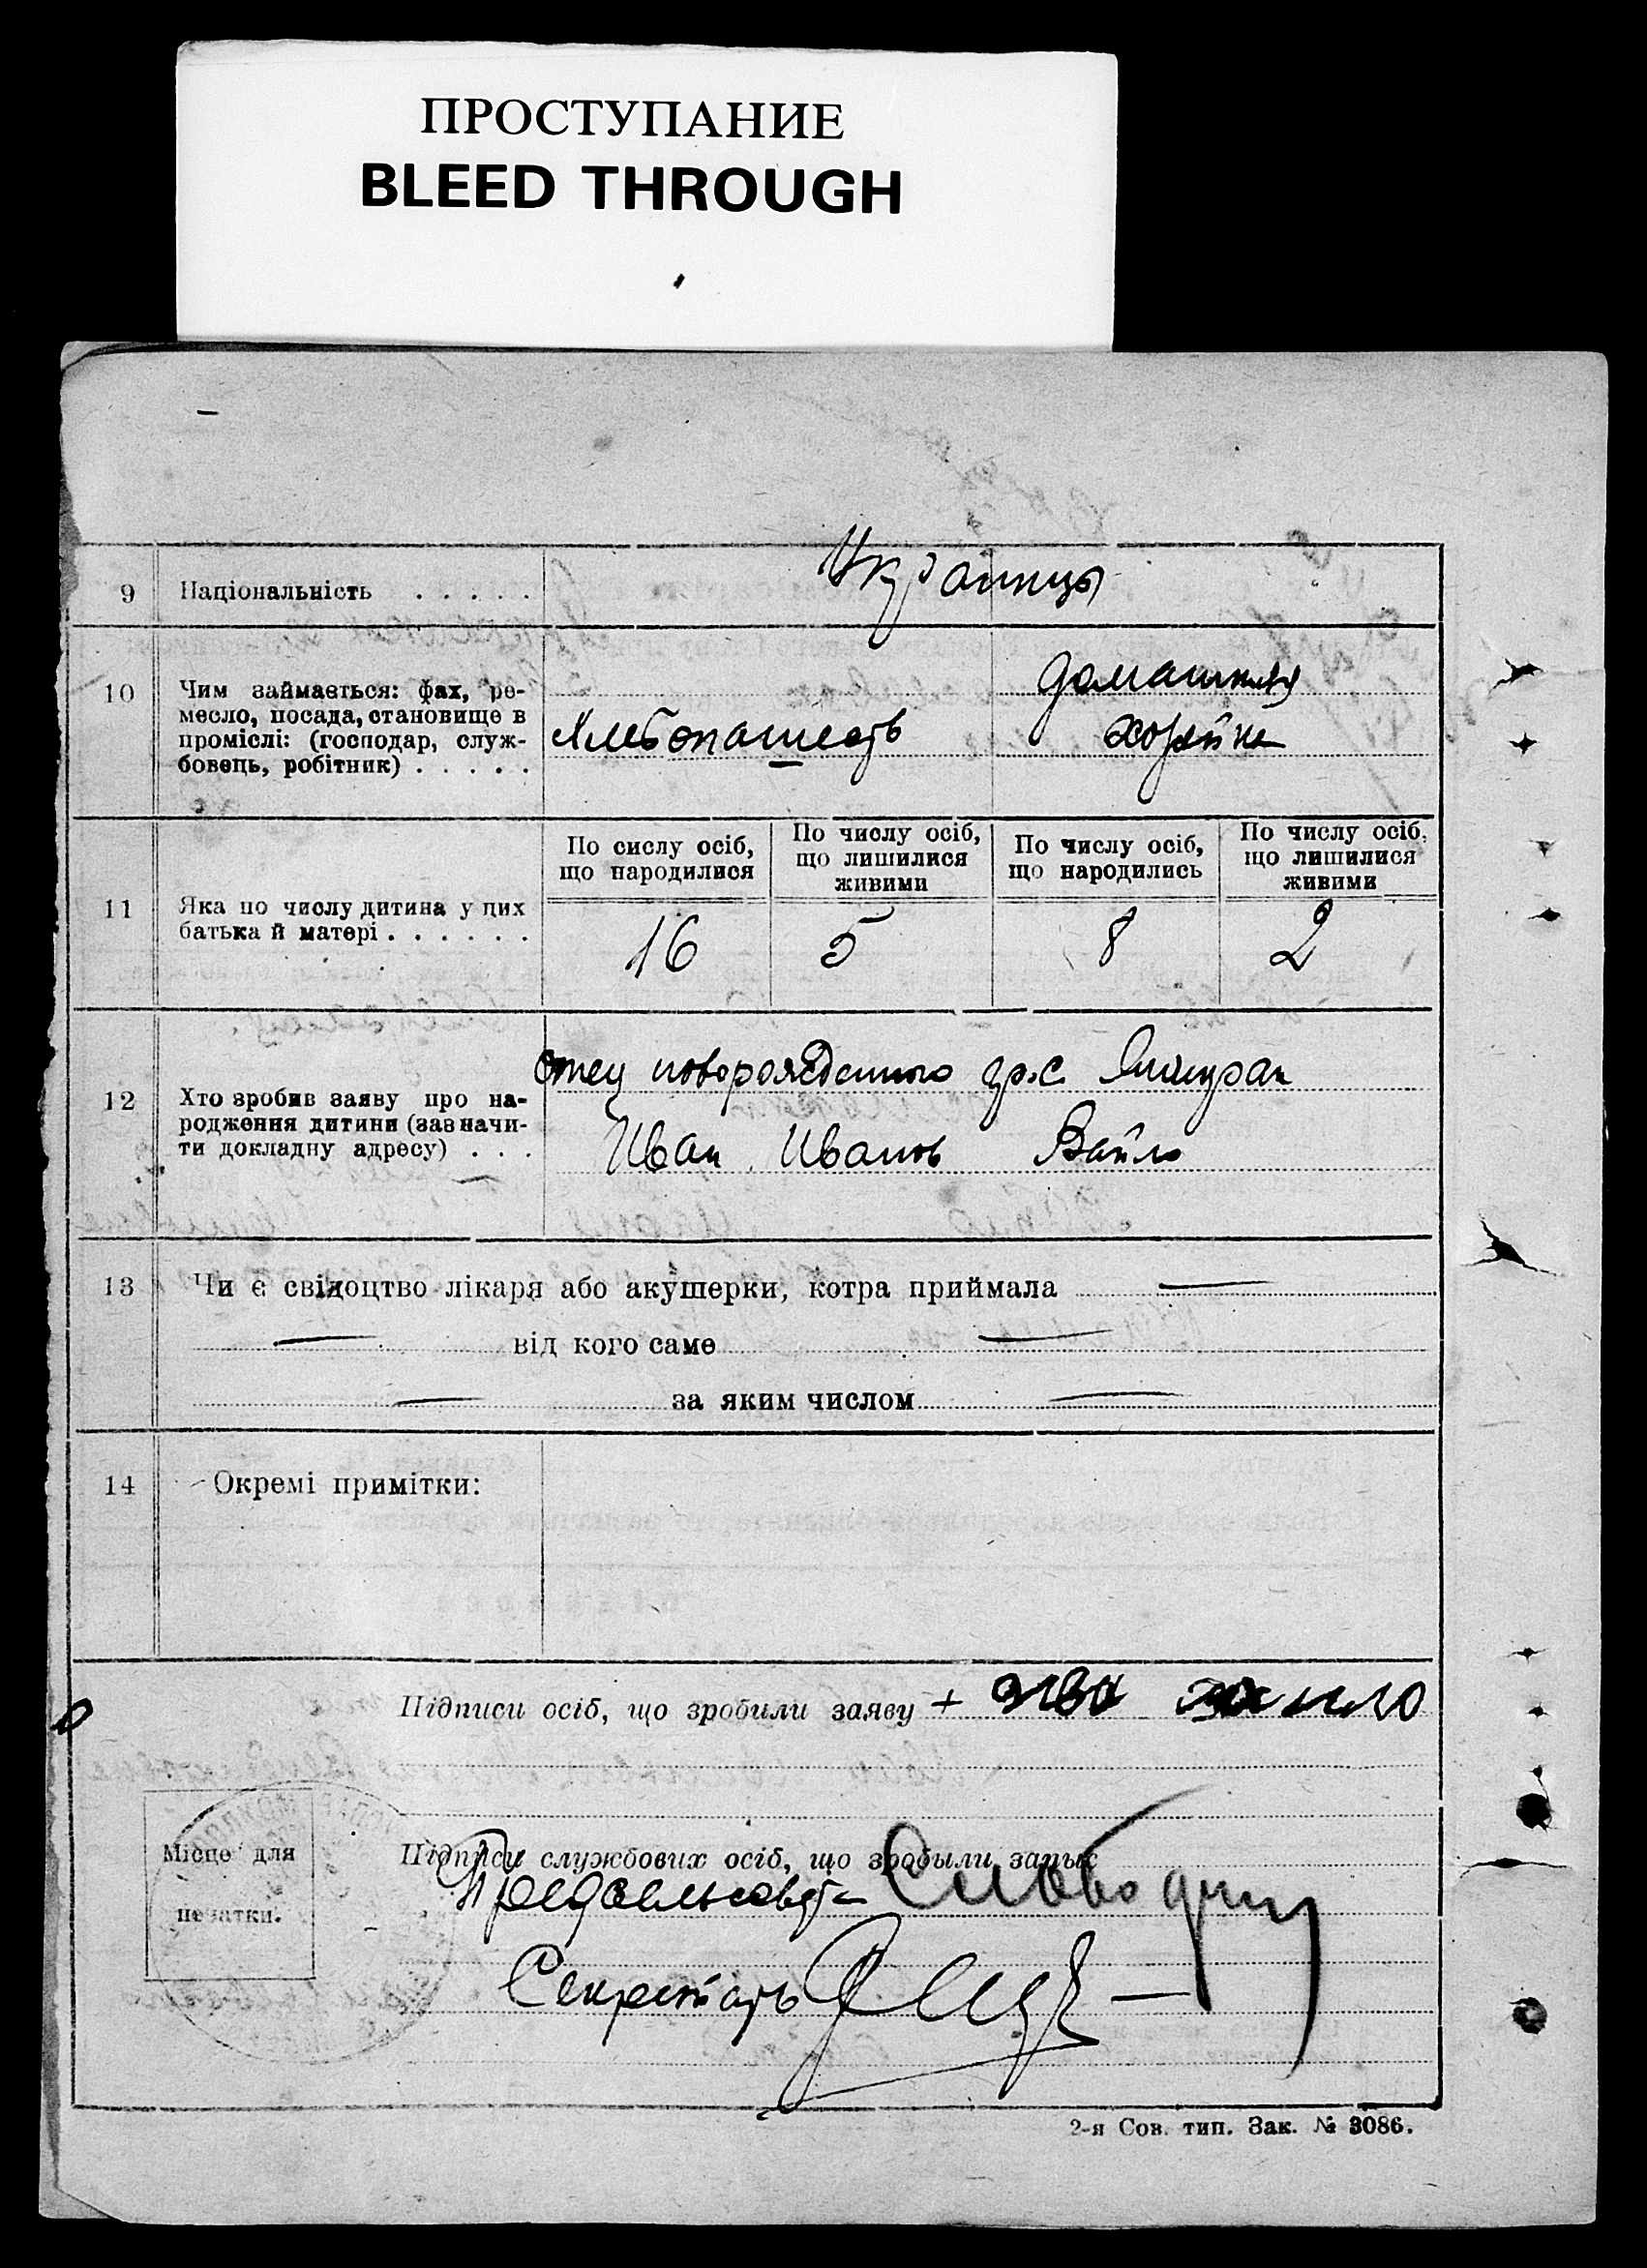 ПРОСТУПАНИЕ
BLEED THROUGH
9 Національність . . . . . Украинцы
10 Чим займається: фах, ре-
месло, посада, становище в
проміслі: (господар, служ-
бовець, робітник) . . . . .
Хлебопашесть
домашняя
хозяйка
11 Яка по числу дитина у цих
батька й матері . . . . . .
По сислу осіб,
що народилися
По числу осіб,
що лишилися
живими
По числу осіб,
що народились
По числу осіб,
що лишилися
живими
16 5 8 2
12 Хто зробив заяву про на-
родження дитини (зазначи-
ти докладну адресу) . . .
отец новорожденного гр. с.
Иван Иванов Вайло
13 Чи є свідоцтво лікаря або акушерки, котра приймала —
— від кого саме —
— за яким числом —
14 Окремі примітки:
Підписи осіб, що зробили заяву +
Місце для
печатки.
Підписи службових осіб, що зробыли запис
Предсельсовета
Секретарь
2-я Сов. тип. Зак. № 3086.